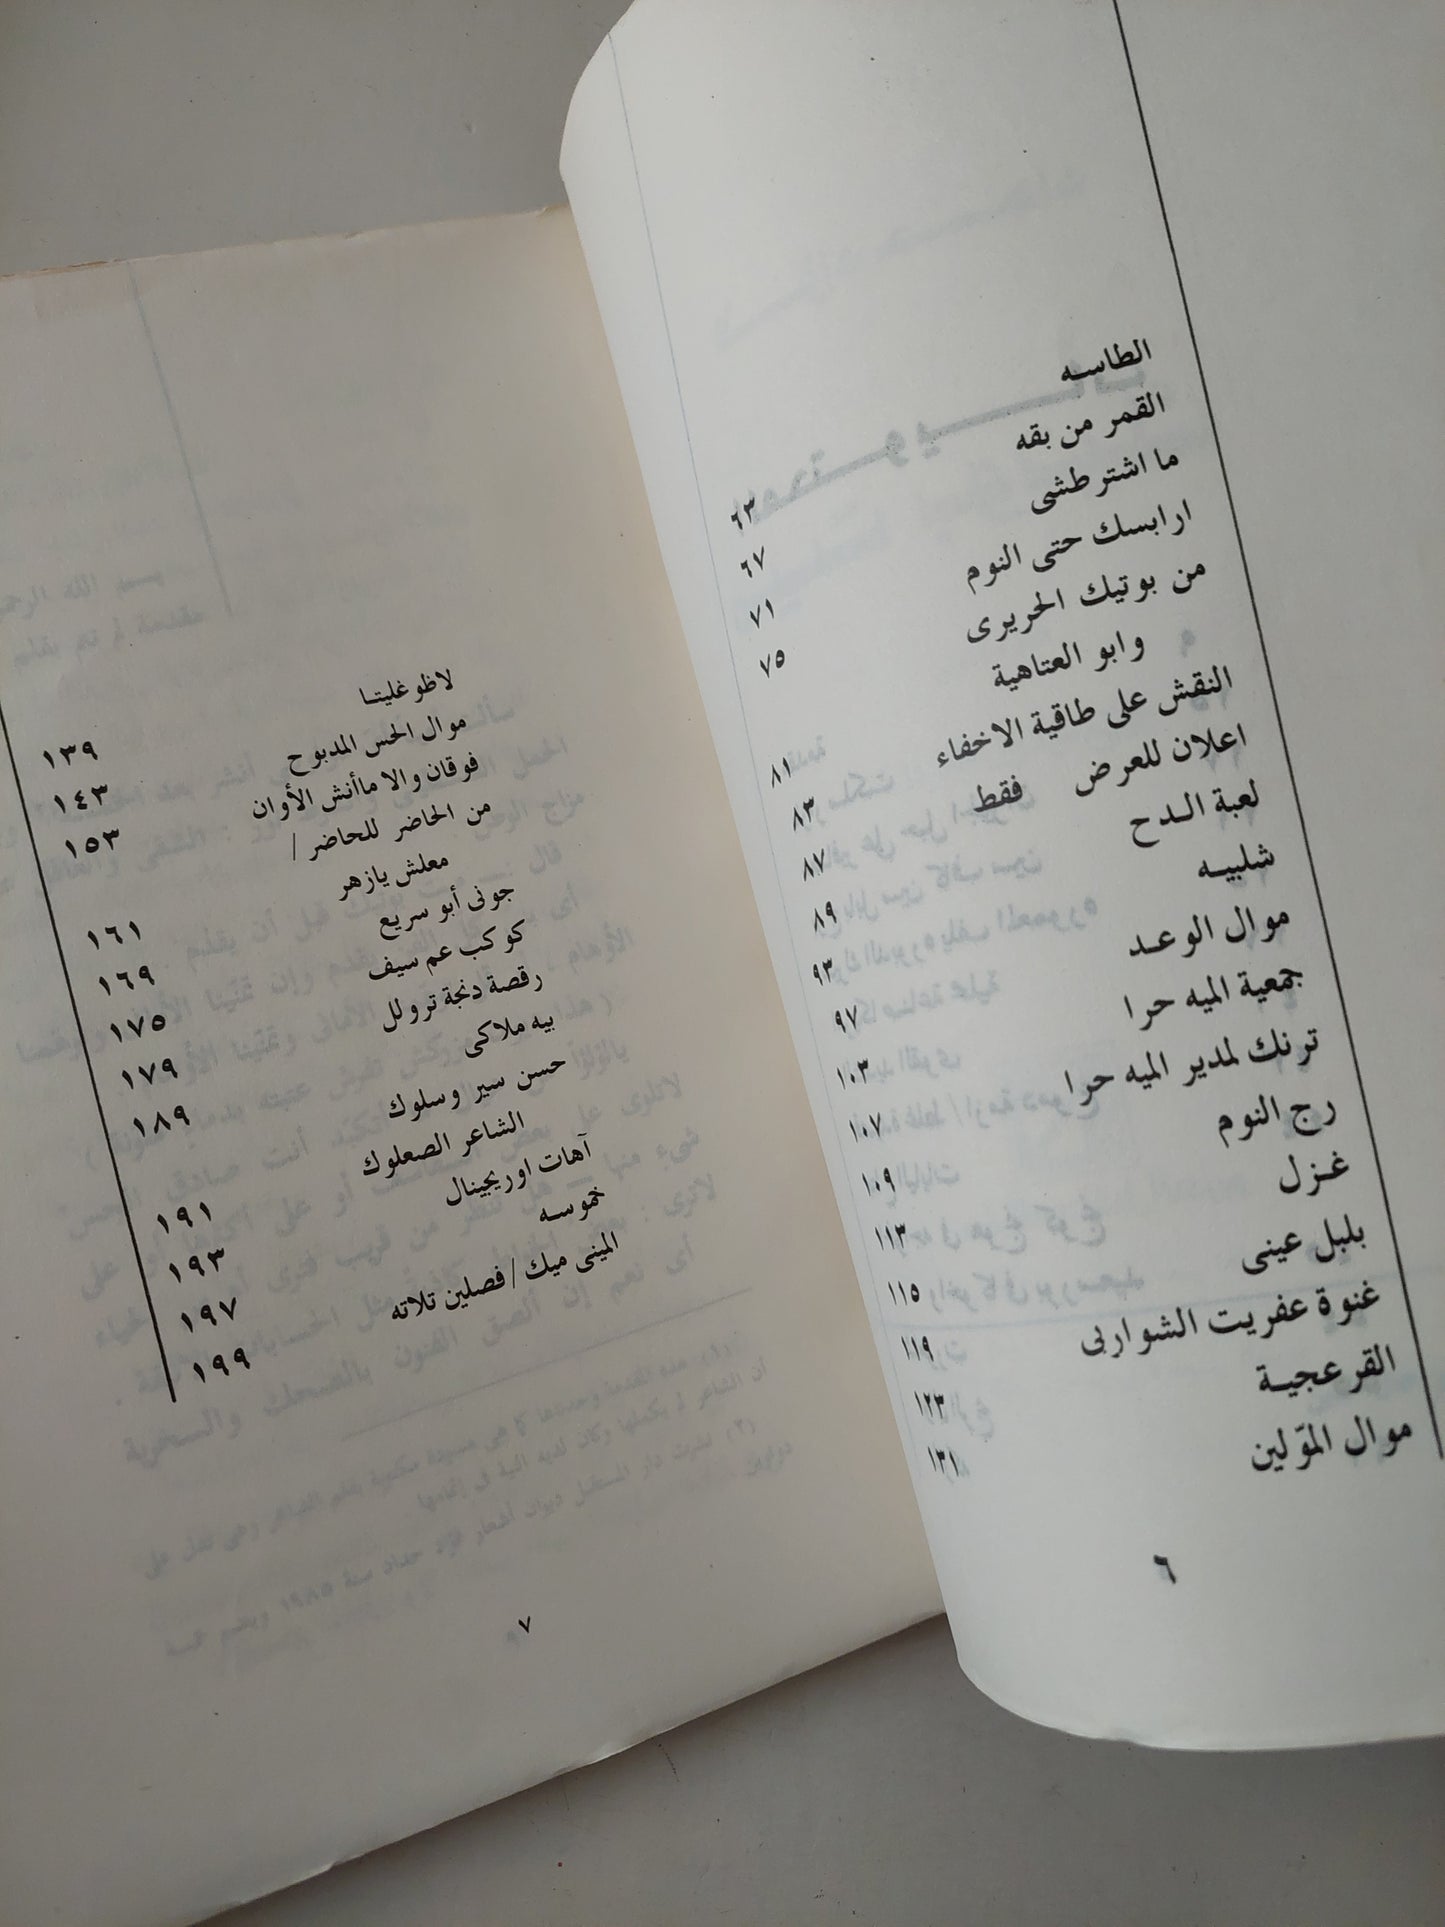 الطاسـه ٦٣
القمر من بقه ٦٧
ما اشترطشى ٧١
ارابسك حتى النوم ٧٥
من بوتيك الحريرى
وابو العتاهية ٨١
النقش على طاقية الاخفاء ٨٣
اعلان للعرض فقط ٨٧
لعبة الـدح ٨٩
شلبيـه ٩٣
موال الوعـد ٩٧
جمعية الميه حرا ١٠٣
ترنك لمدير الميه حرا ١٠٧
رج النوم ١٠٩
غـزل ١١٣
بلبل عينى ١١٥
غنوة عفريت الشواربى ١١٩
القرعجيـة ١٢٣
موال الموّلين ١٣١
٦
لاظوغليتـا ١٣٩
موال الحس المدبوح ١٤٣
فوقان والا ماأنش الأوان ١٥٣
من الحاضر للحاضر /
معلش يازهر ١٦١
جونى أبو سريع ١٦٩
كوكب عم سيف ١٧٥
رقصة دنجة ترولل ١٧٩
بيه ملاكى ١٨٩
حسن سير وسلوك
الشاعر الصعلوك ١٩١
آهات اوريجينال ١٩٣
خموسـه ١٩٧
المينى ميك / فصلين تلاته ١٩٩
٧